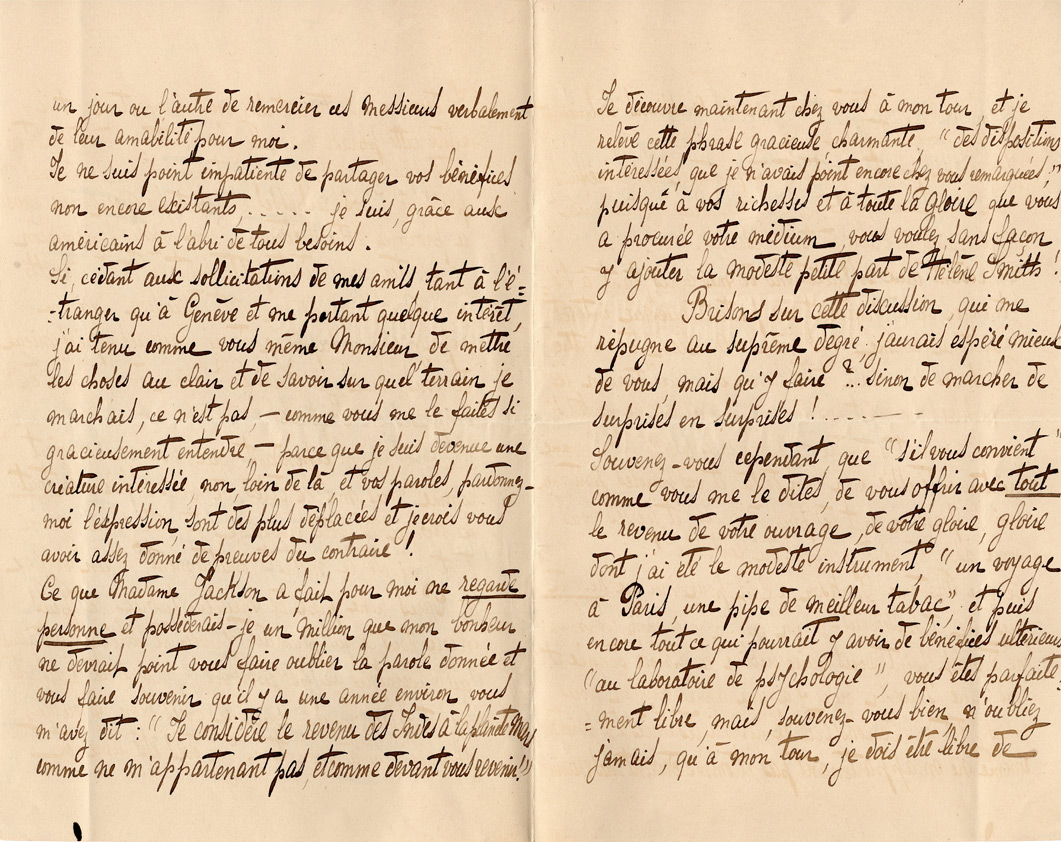 un jour ou l'autre de remercier ces messieurs verbalement
de leur amabilité pour moi.
Je ne suis point impatiente de partager vos bénéfices
non encore existants, ..... je suis, grâce aux
américains à l'abri de tous besoins.
Si, cédant aux sollicitations de mes amis tant à l'é=
-tranger qu'à Genève et me portant quelque intérêt,
j'ai tenu comme vous même Monsieur de mettre
les choses au clair et de savoir sur quel terrain je
marchais, ce n'est pas, — comme vous me le faites si
gracieusement entendre — parce que je suis devenue une
créature intéressée, non loin de là, et vos paroles, pardonnez-
moi l'éxpression sont des plus déplacées et je crois vous
avoir assez donné de preuves du contraire !
Ce que Madame Jackson a fait pour moi ne regarde
personne et posséderais-je un Million que mon bonheur
ne devrait point vous faire oublier la parole donnée et
vous faire souvenir qu'il y a une année environ vous
m'avez dit : " Je considère le revenu des Indes à la planète Mars
comme ne m'appartenant pas, et comme devant vous revenir!"
Je découvre maintenant chez vous à mon tour, et je
relève cette phrase gracieuse charmante, " des dispositions
intéressées, que je n'avais point encore chez vous remarquées,"
puisqué à vos richesses et à toute la gloire que vous
a procurée votre médium, vous voulez sans façon
y ajouter la modeste petite part de Hélène Smith !
Brisons sur cette discussion, qui me
répugne au suprême dégré, j'aurais espéré mieux
de vous, mais qu'y faire ?... sinon de marcher de
surprises en surprises ! .......
Souvenez-vous cependant, que "s'il vous convient"
comme vous me le dites, de vous offrir avec tout
le revenu de votre ouvrage, de votre gloire, gloire
dont j'ai été le modeste instrument, " un voyage
à Paris, une pipe de meilleur tabac" et puis
encore tout ce qui pourrait y avoir de bénéfices ultérieurs
"au laboratoire de psychologie", vous êtes parfaite
=ment libre, mais, souvenez-vous bien, n'oubliez
jamais, qu'à mon tour, je dois être libre de